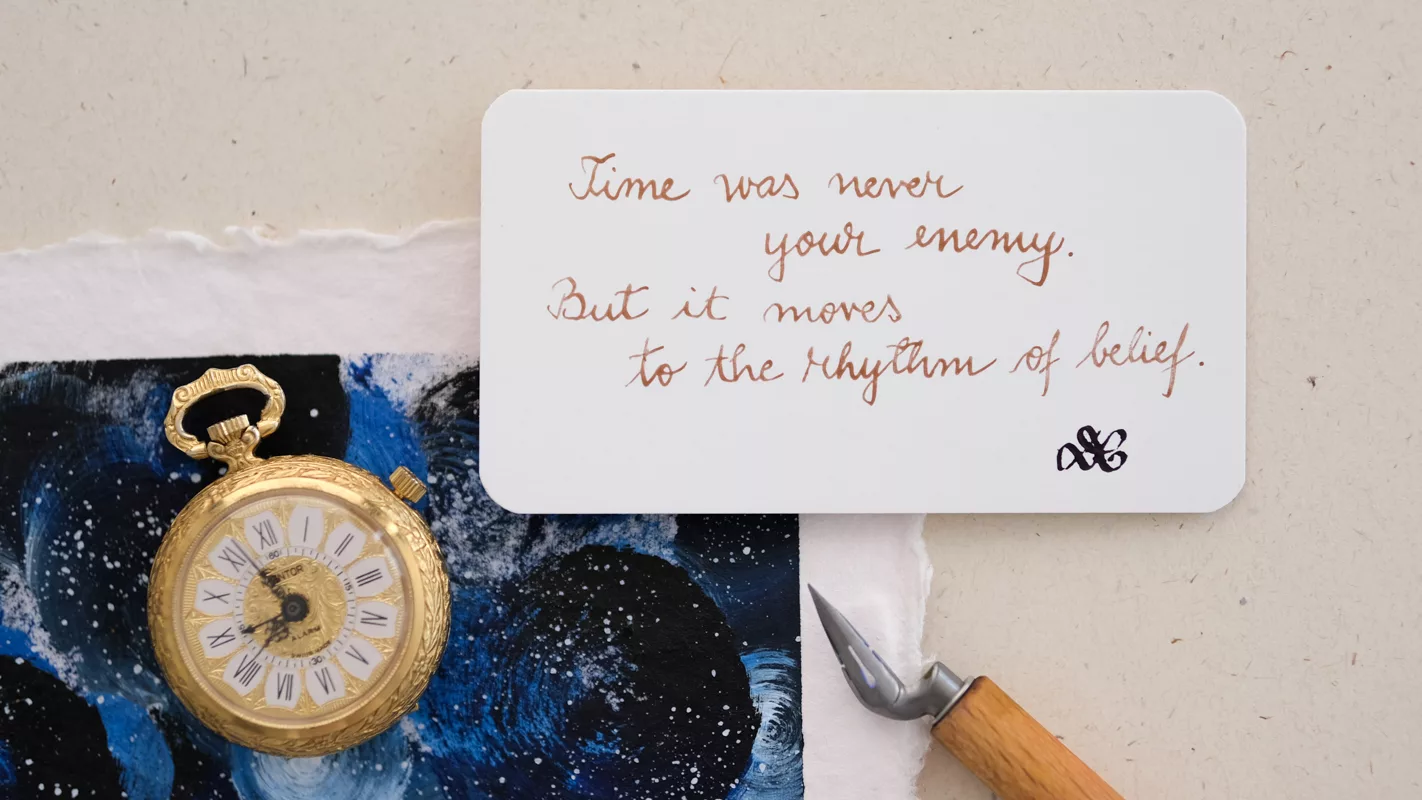 Time was never
your enemy.
But it moves
to the rhythm of belief.
XII
I
II
III
IV
V
VI
VII
VIII
IX
X
XI
60
15
30
ALARM